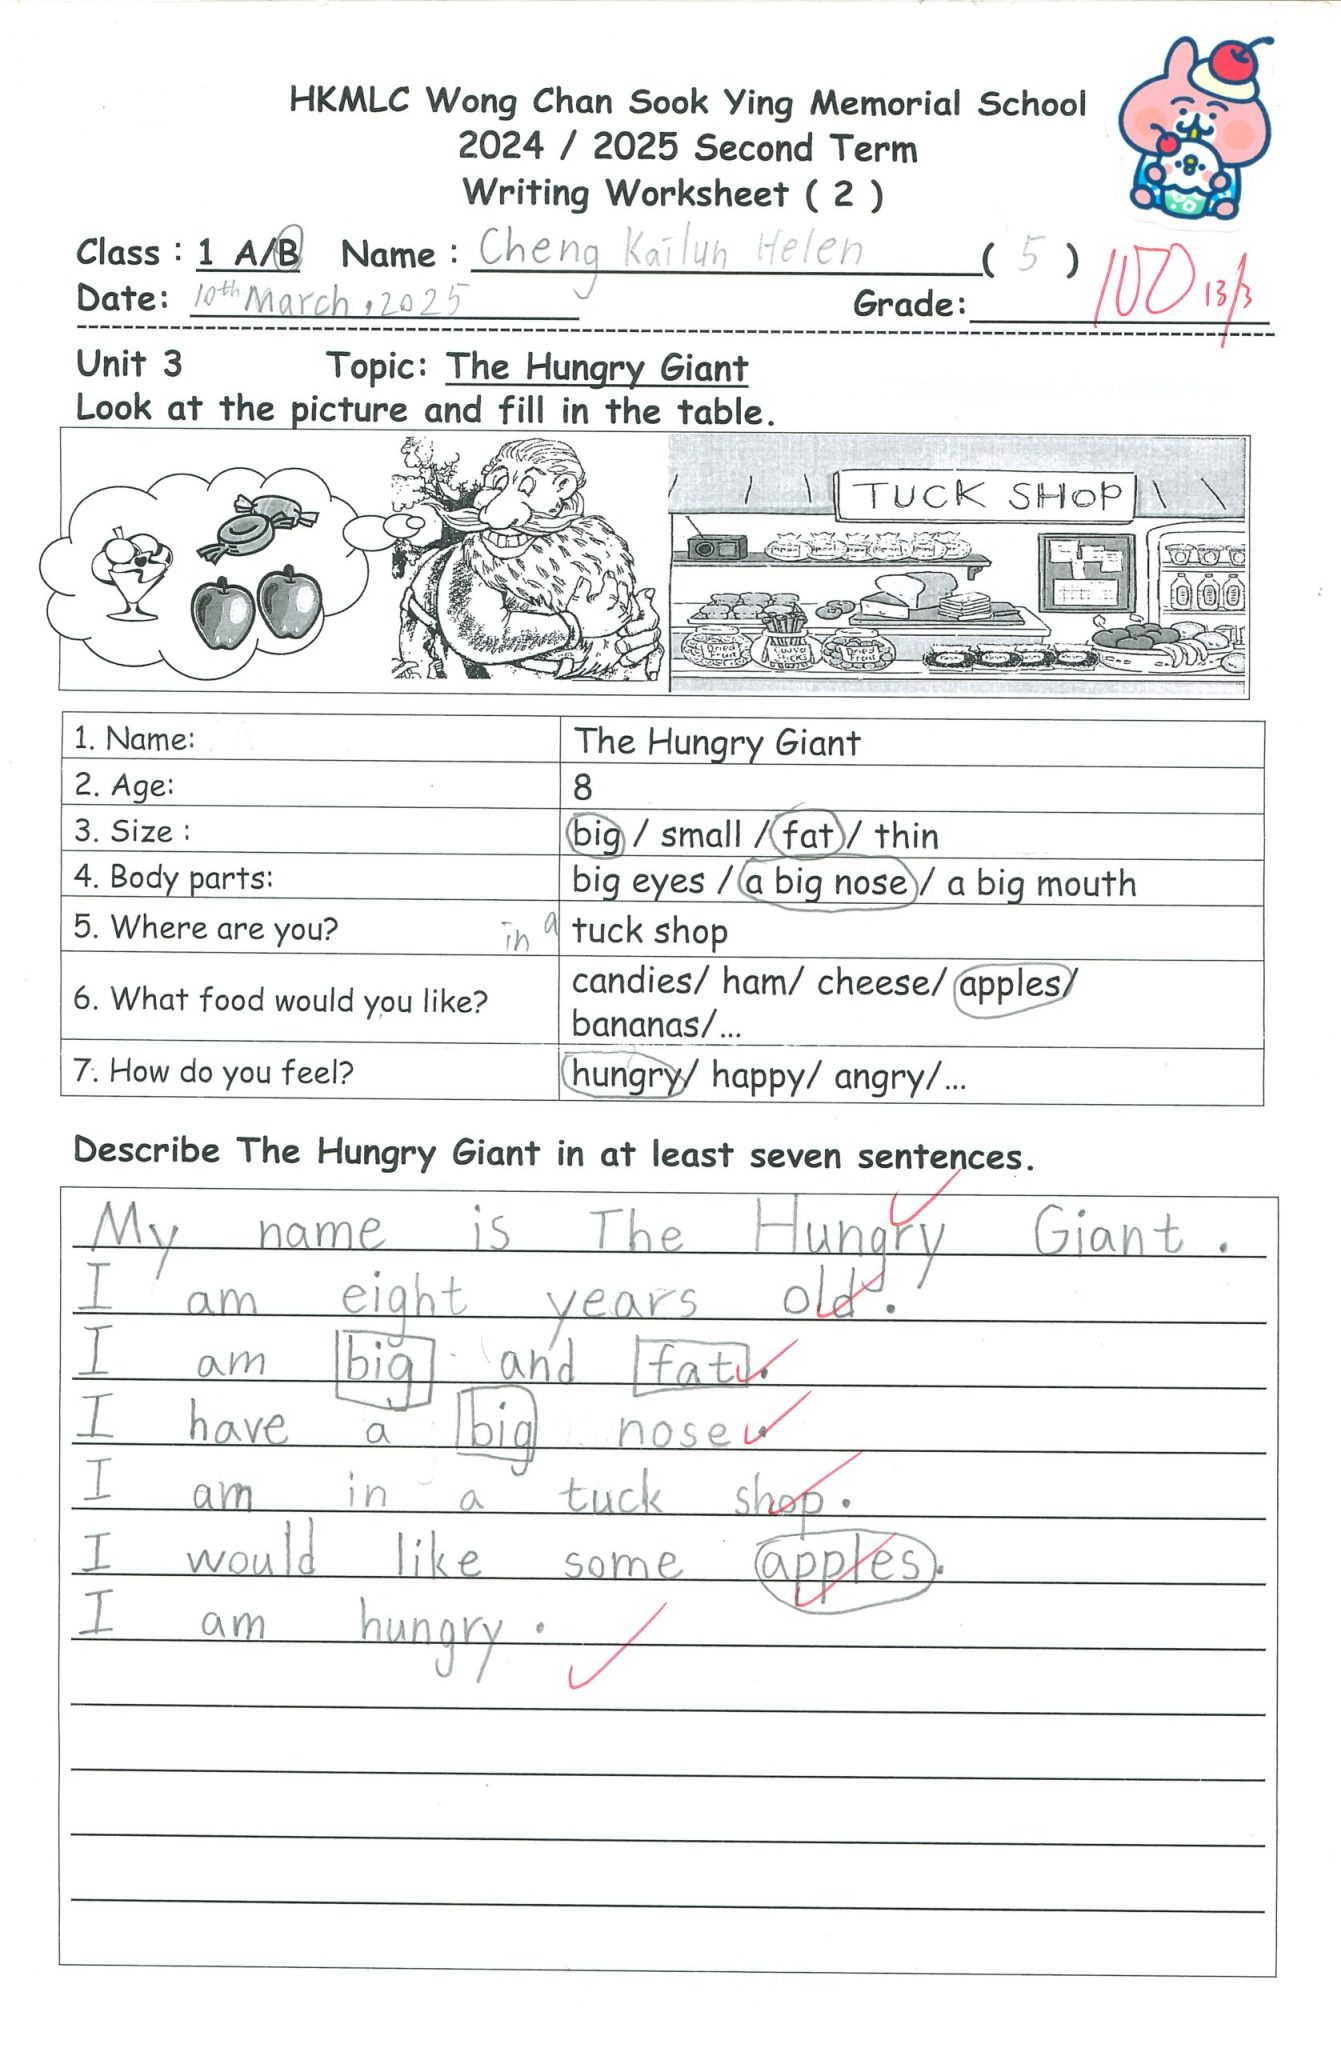 HKMLC Wong Chan Sook Ying Memorial School
2024 / 2025 Second Term
Writing Worksheet ( 2 )
Class : 1 A/B Name : Cheng Kailun Helen ( 5 )
100 13/3
Date: 10th March, 2025 Grade:
Unit 3 Topic: The Hungry Giant
Look at the picture and fill in the table.
TUCK SHOP
Dried Fruit Dried Fruit
1. Name: The Hungry Giant
2. Age: 8
3. Size : big / small / fat / thin
4. Body parts: big eyes / a big nose / a big mouth
5. Where are you? in a tuck shop
6. What food would you like? candies/ ham/ cheese/ apples/
bananas/...
7. How do you feel? hungry/ happy/ angry/...
Describe The Hungry Giant in at least seven sentences.
My name is The Hungry Giant.
I am eight years old.
I am big and fat.
I have a big nose.
I am in a tuck shop.
I would like some apples.
I am hungry.